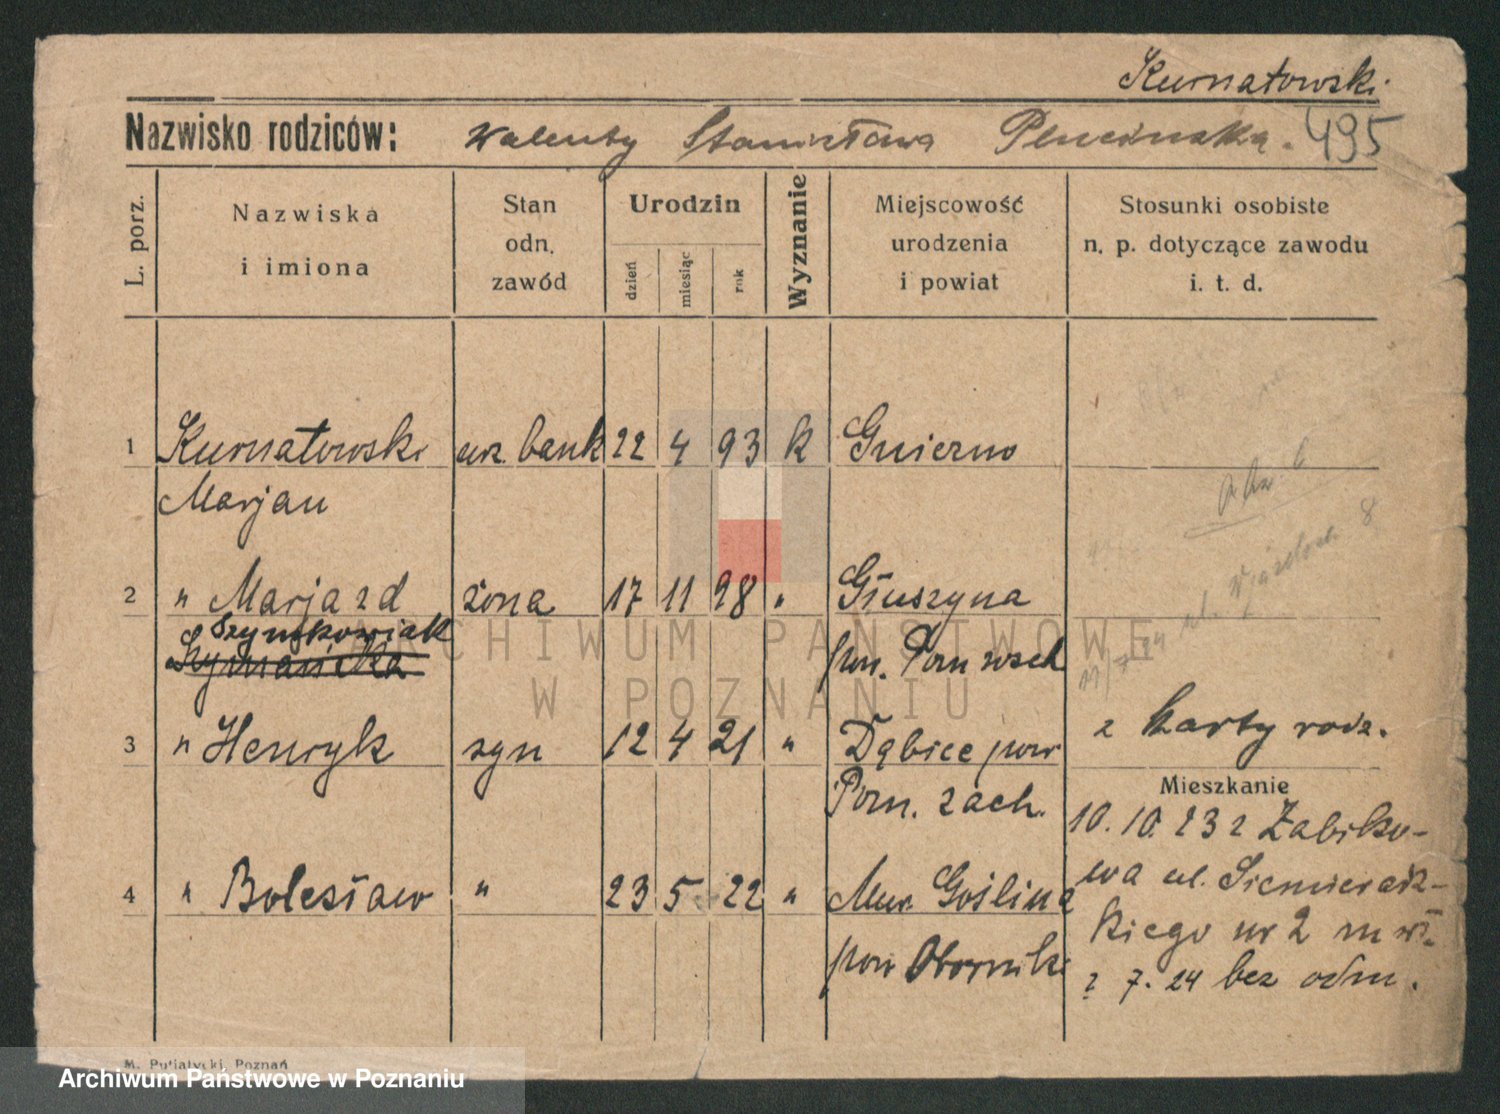 Kurnatowski
Nazwisko rodziców: Walenty Stanisława Plucinska. 495
L. porz.
Nazwiska
i imiona
Stan
odn.
zawód
Urodzin
dzień
miesiąc
rok
Wyznanie
Miejscowość
urodzenia
i powiat
Stosunki osobiste
n. p. dotyczące zawodu
i. t. d.
1 Kurnatowski urz. bank 22 4 93 k Gniezno
Marjan
2 " Marja zd żona 17 11 98 " Głuszyna
Szymkowiak
pow. Pozn wsch
3 " Henryk syn 12 4 21 " Dąbice pow
Pozn. zach.
z karty rodz.
Mieszkanie
4 " Bolesław " 23 5 22 " Mur. Goślina
pow Oborniki
10. 10. 23 z Żabiko-
wa ul. Siemieradz-
kiego nr 2 m wł.
7. 24 bez odm.
ul. 8
M. Putiatycki, Poznań
ARCHIWUM PAŃSTWOWE
W POZNANIU
Archiwum Państwowe w Poznaniu